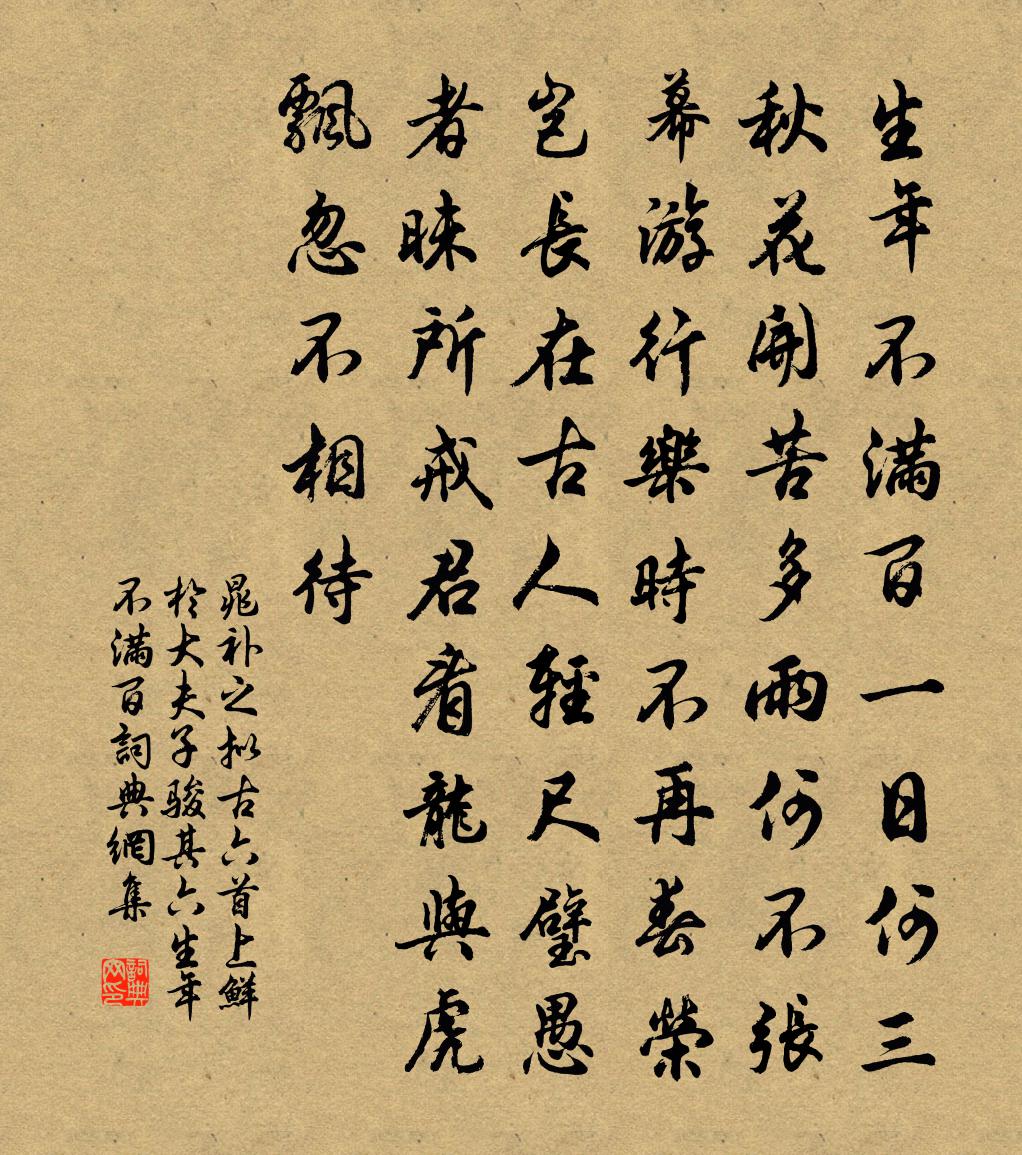 生年不滿百一日何三
秋花開苦多雨何不張
幕游行樂時不再春榮
豈長在古人輕尺璧愚
者昧所戒君看龍與虎
飄忽不相待
晁补之拟古六首上鮮
於大夫子骏其六生年
不滿百詞典網集
詞典
网印